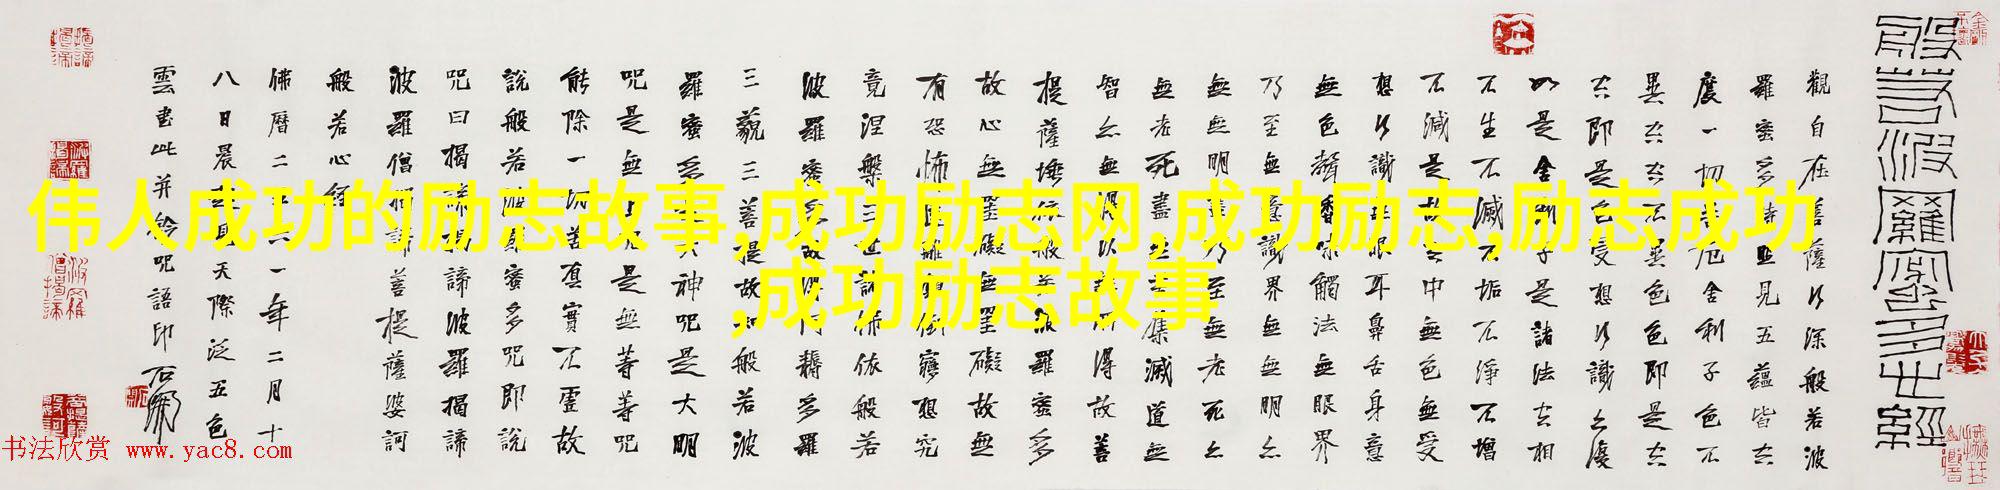 般若波羅蜜多心經
觀自在菩薩行深般若波
羅蜜多時照見五蘊皆空
度一切苦厄舍利子色不
異空空不異色色即是空
空即是色受想行識亦復
如是舍利子是諸法空相
不生不滅不垢不淨不增
不減是故空中無色無受
想行識無眼耳鼻舌身意
無色聲香味觸法無眼界
乃至無意識界無無明亦
無無明盡乃至無老死亦
無老死盡無苦集滅道無
智亦無得以無所得故菩
提薩埵依般若波羅蜜多
故心無罣礙無罣礙故無
有恐怖遠離顛倒夢想究
竟涅槃三世諸佛依般若
波羅蜜多故得阿耨多羅
三藐三菩提故知般若波
羅蜜多是大神咒是大明
咒是無上咒是無等等咒
能除一切苦真實不虛故
說般若波羅蜜多咒即說
咒曰揭諦揭諦波羅揭諦
波羅僧揭諦菩提薩婆訶
般若心經
佛曆二五六一年二月十
八日晨起見天際泛五色
雲書此并鈐咒語印
伟人成功的励志故事,成功励志网,成功励志,励志成功
,成功励志故事
书法欣赏 www.yac8.com